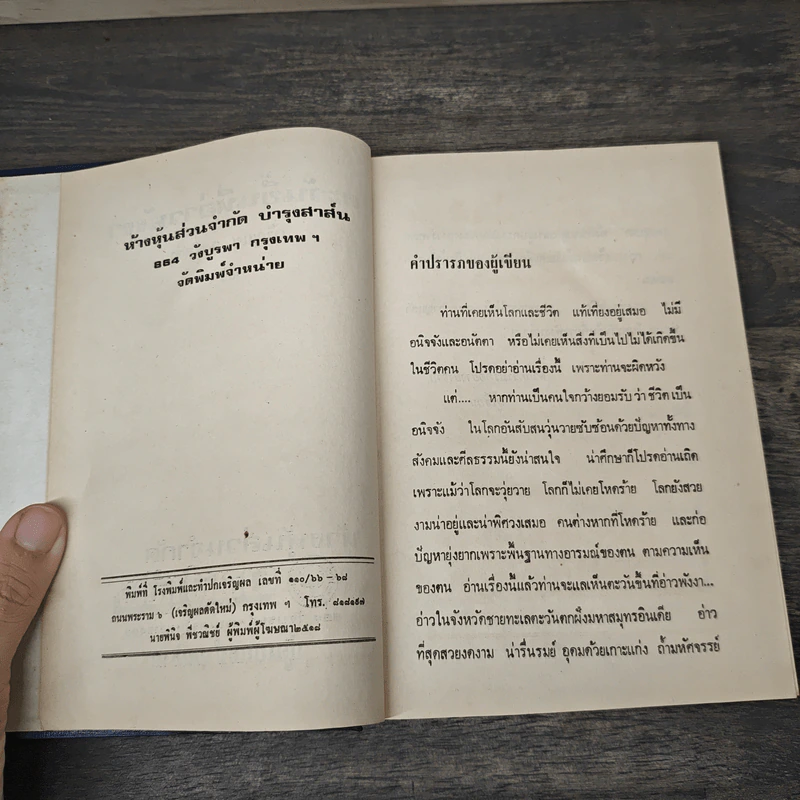 ห้างหุ้นส่วนจำกัด บำรุงสาส์น
๕๕๔ วังบูรพา กรุงเทพ ฯ
จัดพิมพ์จำหน่าย
พิมพ์ที่ โรงพิมพ์และทำปกเจริญผล เลขที่ ๑๑๐/๖๖ - ๖๘
ถนนพระราม ๖ (เจริญผลตัดใหม่) กรุงเทพ ฯ โทร. ๘๑๘๑๕๗
นายพินิจ พืชวณิชย์ ผู้พิมพ์ผู้โฆษณา ๒๕๑๘
คำปรารภของผู้เขียน
ท่านที่เคยเห็นโลกและชีวิต แท้เที่ยงอยู่เสมอ ไม่มี
อนิจจังและอนัตตา หรือไม่เคยเห็นสิ่งที่เป็นไปไม่ได้เกิดขึ้น
ในชีวิตคน โปรดอย่าอ่านเรื่องนี้ เพราะท่านจะผิดหวัง
แต่.... หากท่านเป็นคนใจกว้างยอมรับ ว่า ชีวิต เป็น
อนิจจัง ในโลกอันสับสนวุ่นวายซับซ้อนด้วยปัญหาทั้งทาง
สังคมและศีลธรรมนี้ยังน่าสนใจ น่าศึกษาก็โปรดอ่านเถิด
เพราะแม้ว่าโลกจะวุ่นวาย โลกก็ไม่เคยโหดร้าย โลกยังสวย
งามน่าอยู่และน่าพิศวงเสมอ คนต่างหากที่โหดร้าย และก่อ
ปัญหายุ่งยากเพราะพื้นฐานทางอารมณ์ของตน ตามความเห็น
ของตน อ่านเรื่องนี้แล้วท่านจะแลเห็นตะวันขึ้นที่อ่าวพังงา...
อ่าวในจังหวัดชายทะเลตะวันตกฝั่งมหาสมุทรอินเดีย อ่าว
ที่สุดสวยงดงาม น่ารื่นรมย์ อุดมด้วยเกาะแก่ง ถ้ำมหัศจรรย์